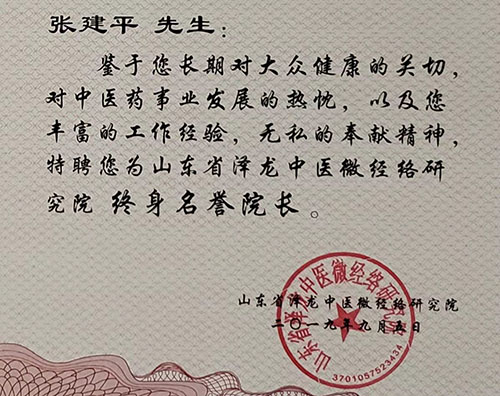 张建平 先生：
鉴于您长期对大众健康的关切，
对中医药事业发展的热忱，以及您
丰富的工作经验，无私的奉献精神，
特聘您为山东省泽龙中医微经络研
究院 终身名誉院长。
山东省泽龙中医微经络研究院
二〇一九年九月五日
山东省泽龙中医微经络研究院
3701057523434